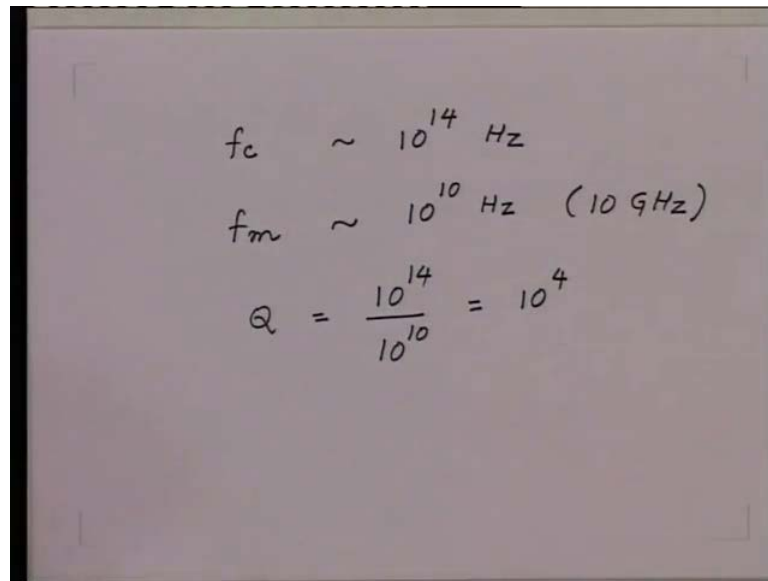 fc ~ 10^14 Hz
fm ~ 10^10 Hz (10 GHz)
Q = 10^14 / 10^10 = 10^4